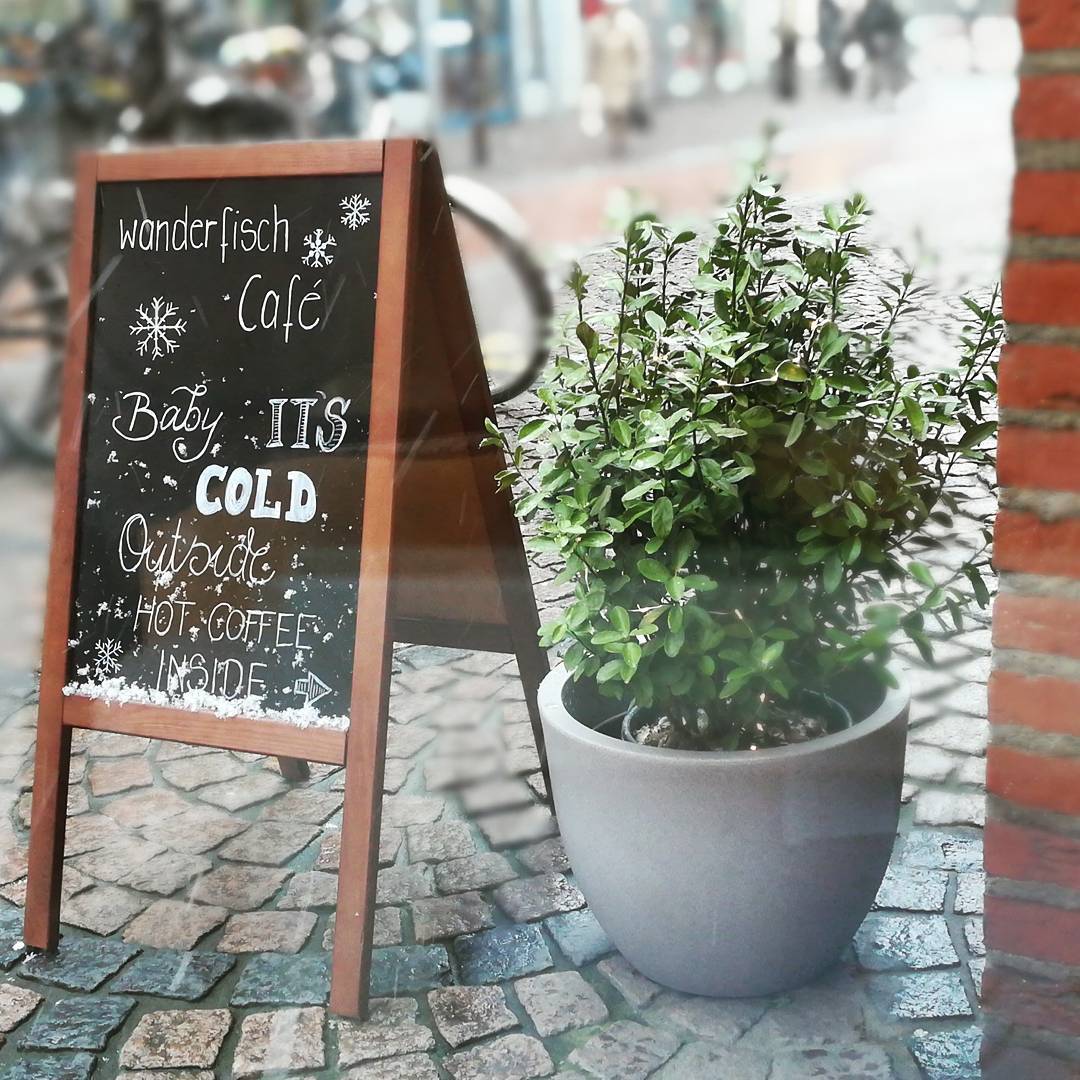 wanderfisch
Café
Baby ITS
COLD
Outside
HOT COFFEE
INSIDE